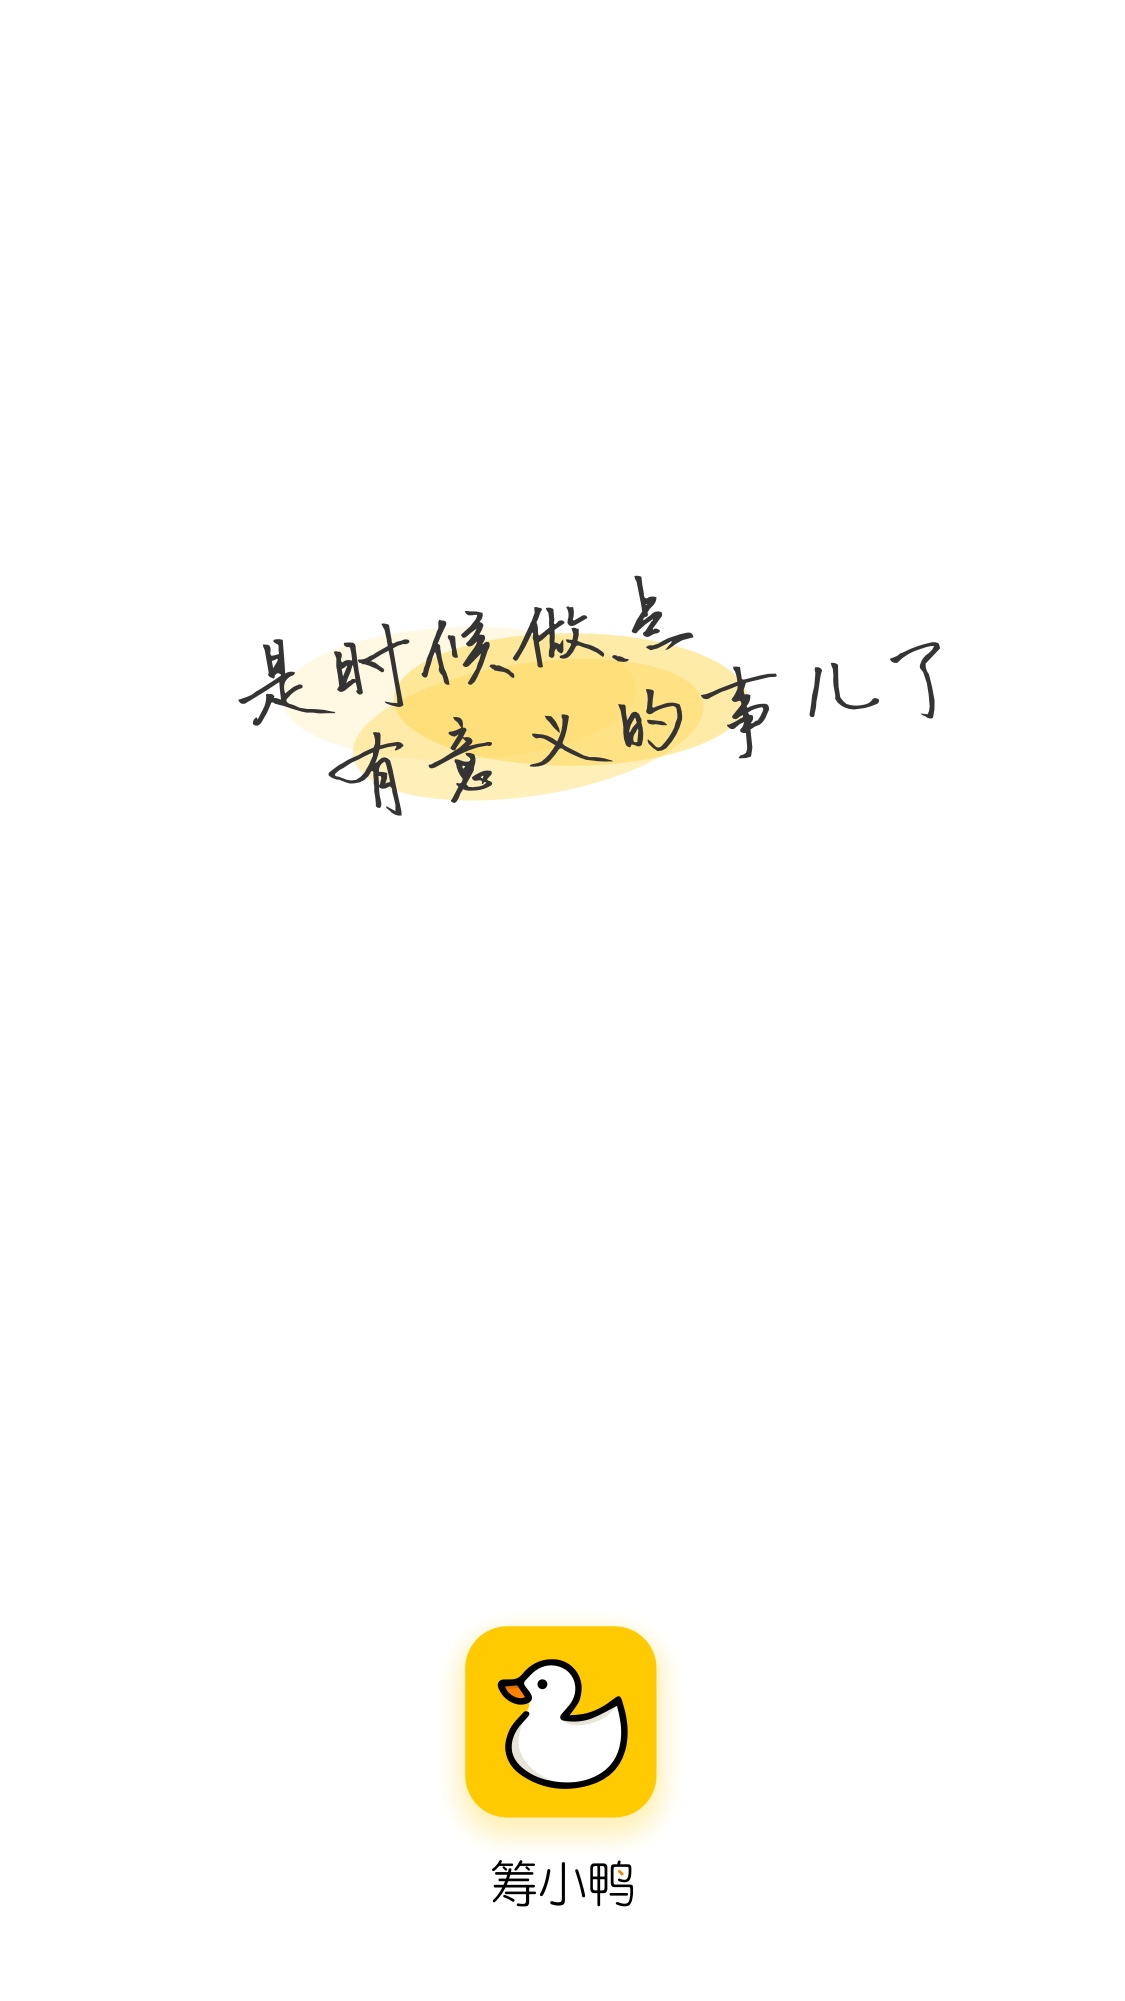 是时候做点
有意义的事儿了
筹小鸭